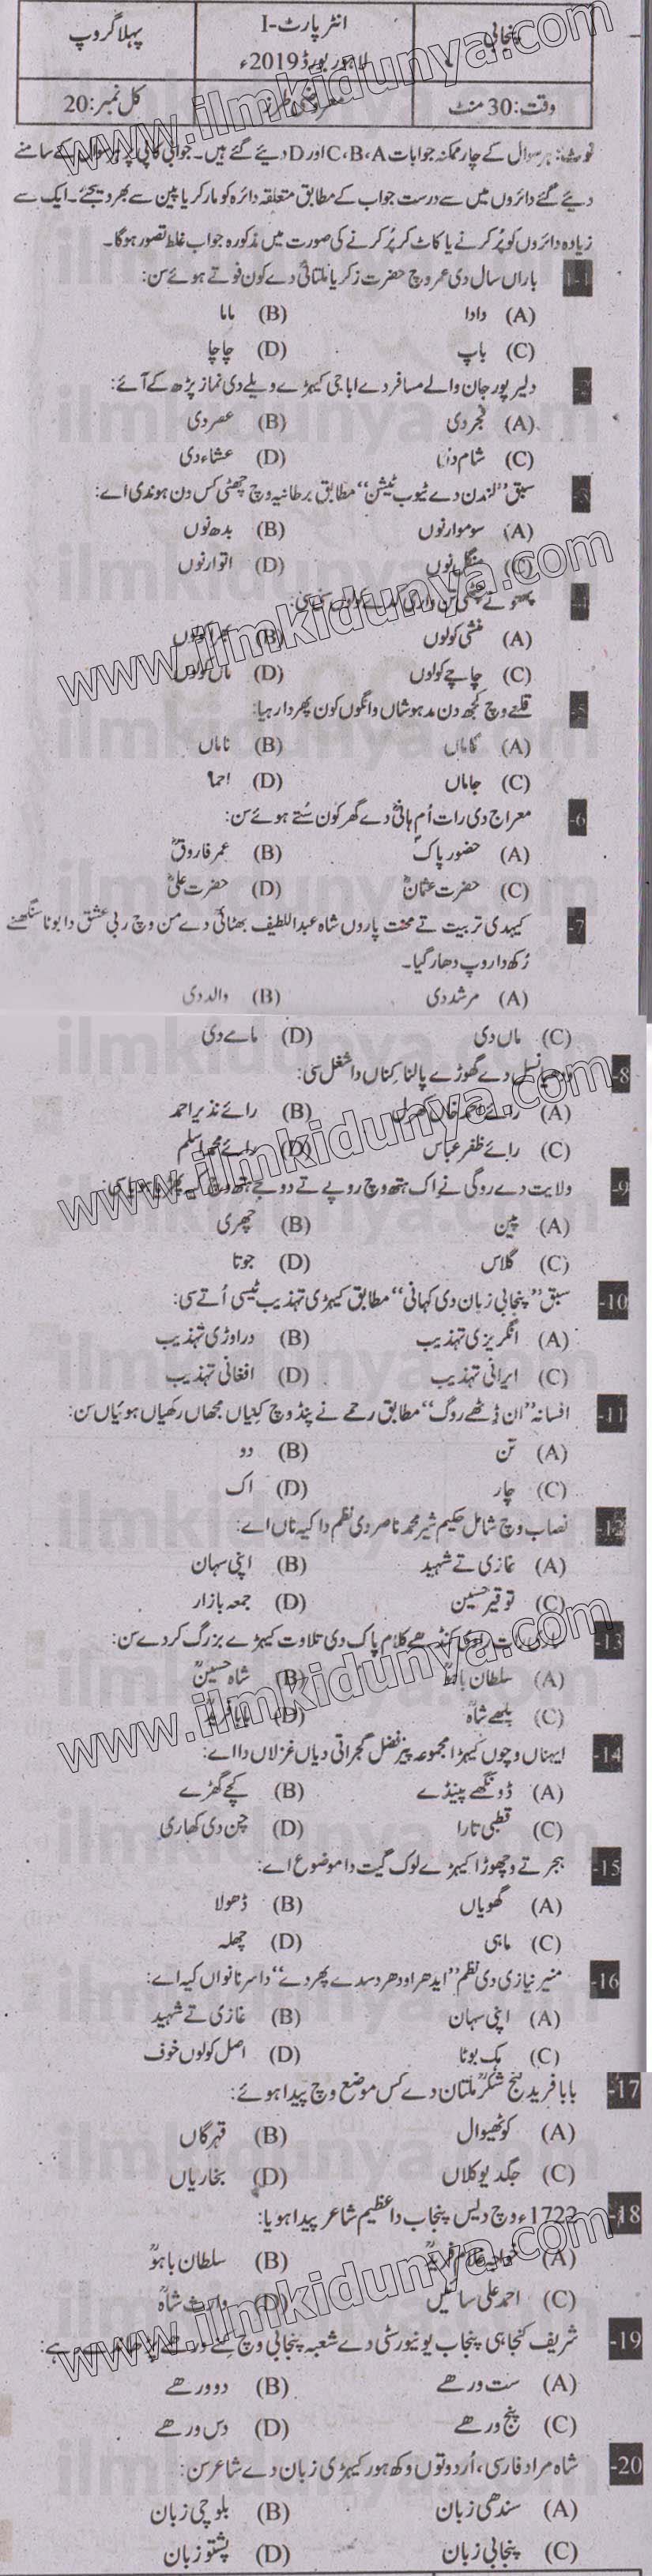 پنجابی
انٹر پارٹ-I
پہلا گروپ
لاہور بورڈ 2019ء
وقت: 30 منٹ
معروضی طرز
کل نمبر: 20
نوٹ: ہر سوال کے چار ممکنہ جوابات C،B،A اور D دیئے گئے ہیں۔ جوابی کاپی پر ہر سوال کے سامنے
دیئے گئے دائروں میں سے درست جواب کے مطابق متعلقہ دائرہ کو مارکر یا پین سے بھر دیجئے۔ ایک سے
زیادہ دائروں کو پُر کرنے یا کاٹ کر پُر کرنے کی صورت میں مذکورہ جواب غلط تصور ہوگا۔
1-1 باراں سال دی عمر وچ حضرت زکریا ملتانیؒ دے کون فوتے ہوئے سن:
(A) دادا (B) ماما
(C) باپ (D) چاچا
-2 دلیر پور جان والے مسافر دے اباجی کیہڑے ویلے دی نماز پڑھ کے آئے:
(A) فجر دی (B) عصر دی
(C) شام دی (D) عشاء دی
-3 سبق "لندن دے ٹیوب ٹیشن" مطابق برطانیہ وچ چھٹی کس دن ہوندی اے:
(A) سوموار نوں (B) بدھ نوں
(C) منگل نوں (D) اتوار نوں
-4 پھتو نے چٹھی
(A) منشی کولوں (B)
(C) چاچے کولوں (D) ماں کولوں
-5 قلعے وچ کجھ دن مدہوشاں وانگوں کون پھردا رہیا:
(A) گاماں (B) ناماں
(C) جاماں (D) احما
-6 معراج دی رات اُم ہانیؓ دے گھر کون سُتے ہوئے سن:
(A) حضور پاکؐ (B) عمر فاروقؓ
(C) حضرت عثمانؓ (D) حضرت علیؓ
-7 کیہدی تربیت تے محنت پاروں شاہ عبداللطیف بھٹائیؒ دے من وچ ربی عشق دا بوٹا سنگھنے
رُکھ دا روپ دھار گیا۔
(A) مرشد دی (B) والد دی
(C) ماں دی (D) مامے دی
-8 ودھیا نسل دے گھوڑے پالنا کہناں دا شغل سی:
(A) رائے احمد خاں کھرل (B) رائے نذیر احمد
(C) رائے ظفر عباس (D) رائے محمد اسلم
-9 ولایت دے روگی نے اک ہتھ وچ روپے تے دوجے ہتھ وچ کیہ پھڑیا ہویا سی:
(A) پین (B) چھری
(C) گلاس (D) جوتا
-10 سبق "پنجابی زبان دی کہانی" مطابق کیہڑی تہذیب ٹیسی اُتے سی:
(A) انگریزی تہذیب (B) دراوڑی تہذیب
(C) ایرانی تہذیب (D) افغانی تہذیب
-11 افسانہ "ان ڈٹھے روگ" مطابق رحمے نے پنڈ وچ کِنیاں مجھاں رکھیاں ہوئیاں سن:
(A) تن (B) دو
(C) چار (D) اک
-12 نصاب وچ شامل حکیم شیر محمد ناصر دی نظم دا کیہ ناں اے:
(A) غازی تے شہید (B) اپنی سہان
(C) توقیر حسین (D) جمعہ بازار
-13 راوی کنڈھے کلام پاک دی تلاوت کیہڑے بزرگ کردے سن:
(A) سلطان باہوؒ (B) شاہ حسینؒ
(C) بلھے شاہؒ (D) بابا فریدؒ
-14 ایہناں وچوں کیہڑا مجموعہ پیر فضل گجراتی دیاں غزلاں دا اے:
(A) ڈونگھے پینڈے (B) کچے گھڑے
(C) قطبی تارا (D) چن دی کھاری
-15 ہجر تے وچھوڑا کیہڑے لوک گیت دا موضوع اے:
(A) گھوڑیاں (B) ڈھولا
(C) ماہی (D) چھلہ
-16 منیر نیازی دی نظم "ایدھر اودھر دسدے پھردے" دا سرناواں کیہ اے:
(A) اپنی سہان (B) غازی تے شہید
(C) ہک بوٹا (D) اصل کولوں خوف
-17 بابا فرید گنج شکرؒ ملتان دے کس موضع وچ پیدا ہوئے:
(A) کوٹھیوال (B) قہرگاں
(C) جگدیو کلاں (D) بخاریاں
-18 1722ء وچ دیس پنجاب دا عظیم شاعر پیدا ہویا:
(A) خواجہ غلام فریدؒ (B) سلطان باہوؒ
(C) احمد علی سائیں (D) وارث شاہؒ
-19 شریف کنجاہی پنجاب یونیورسٹی دے شعبہ پنجابی وچ کِنے ورھے پڑھاندے رہے:
(A) ست ورھے (B) دو ورھے
(C) پنج ورھے (D) دس ورھے
-20 شاہ مراد فارسی، اُردو توں وکھ ہور کیہڑی زبان دے شاعر سن:
(A) سندھی زبان (B) بلوچی زبان
(C) پنجابی زبان (D) پشتو زبان
www.ilmkidunya.com
ilmkidunya.com